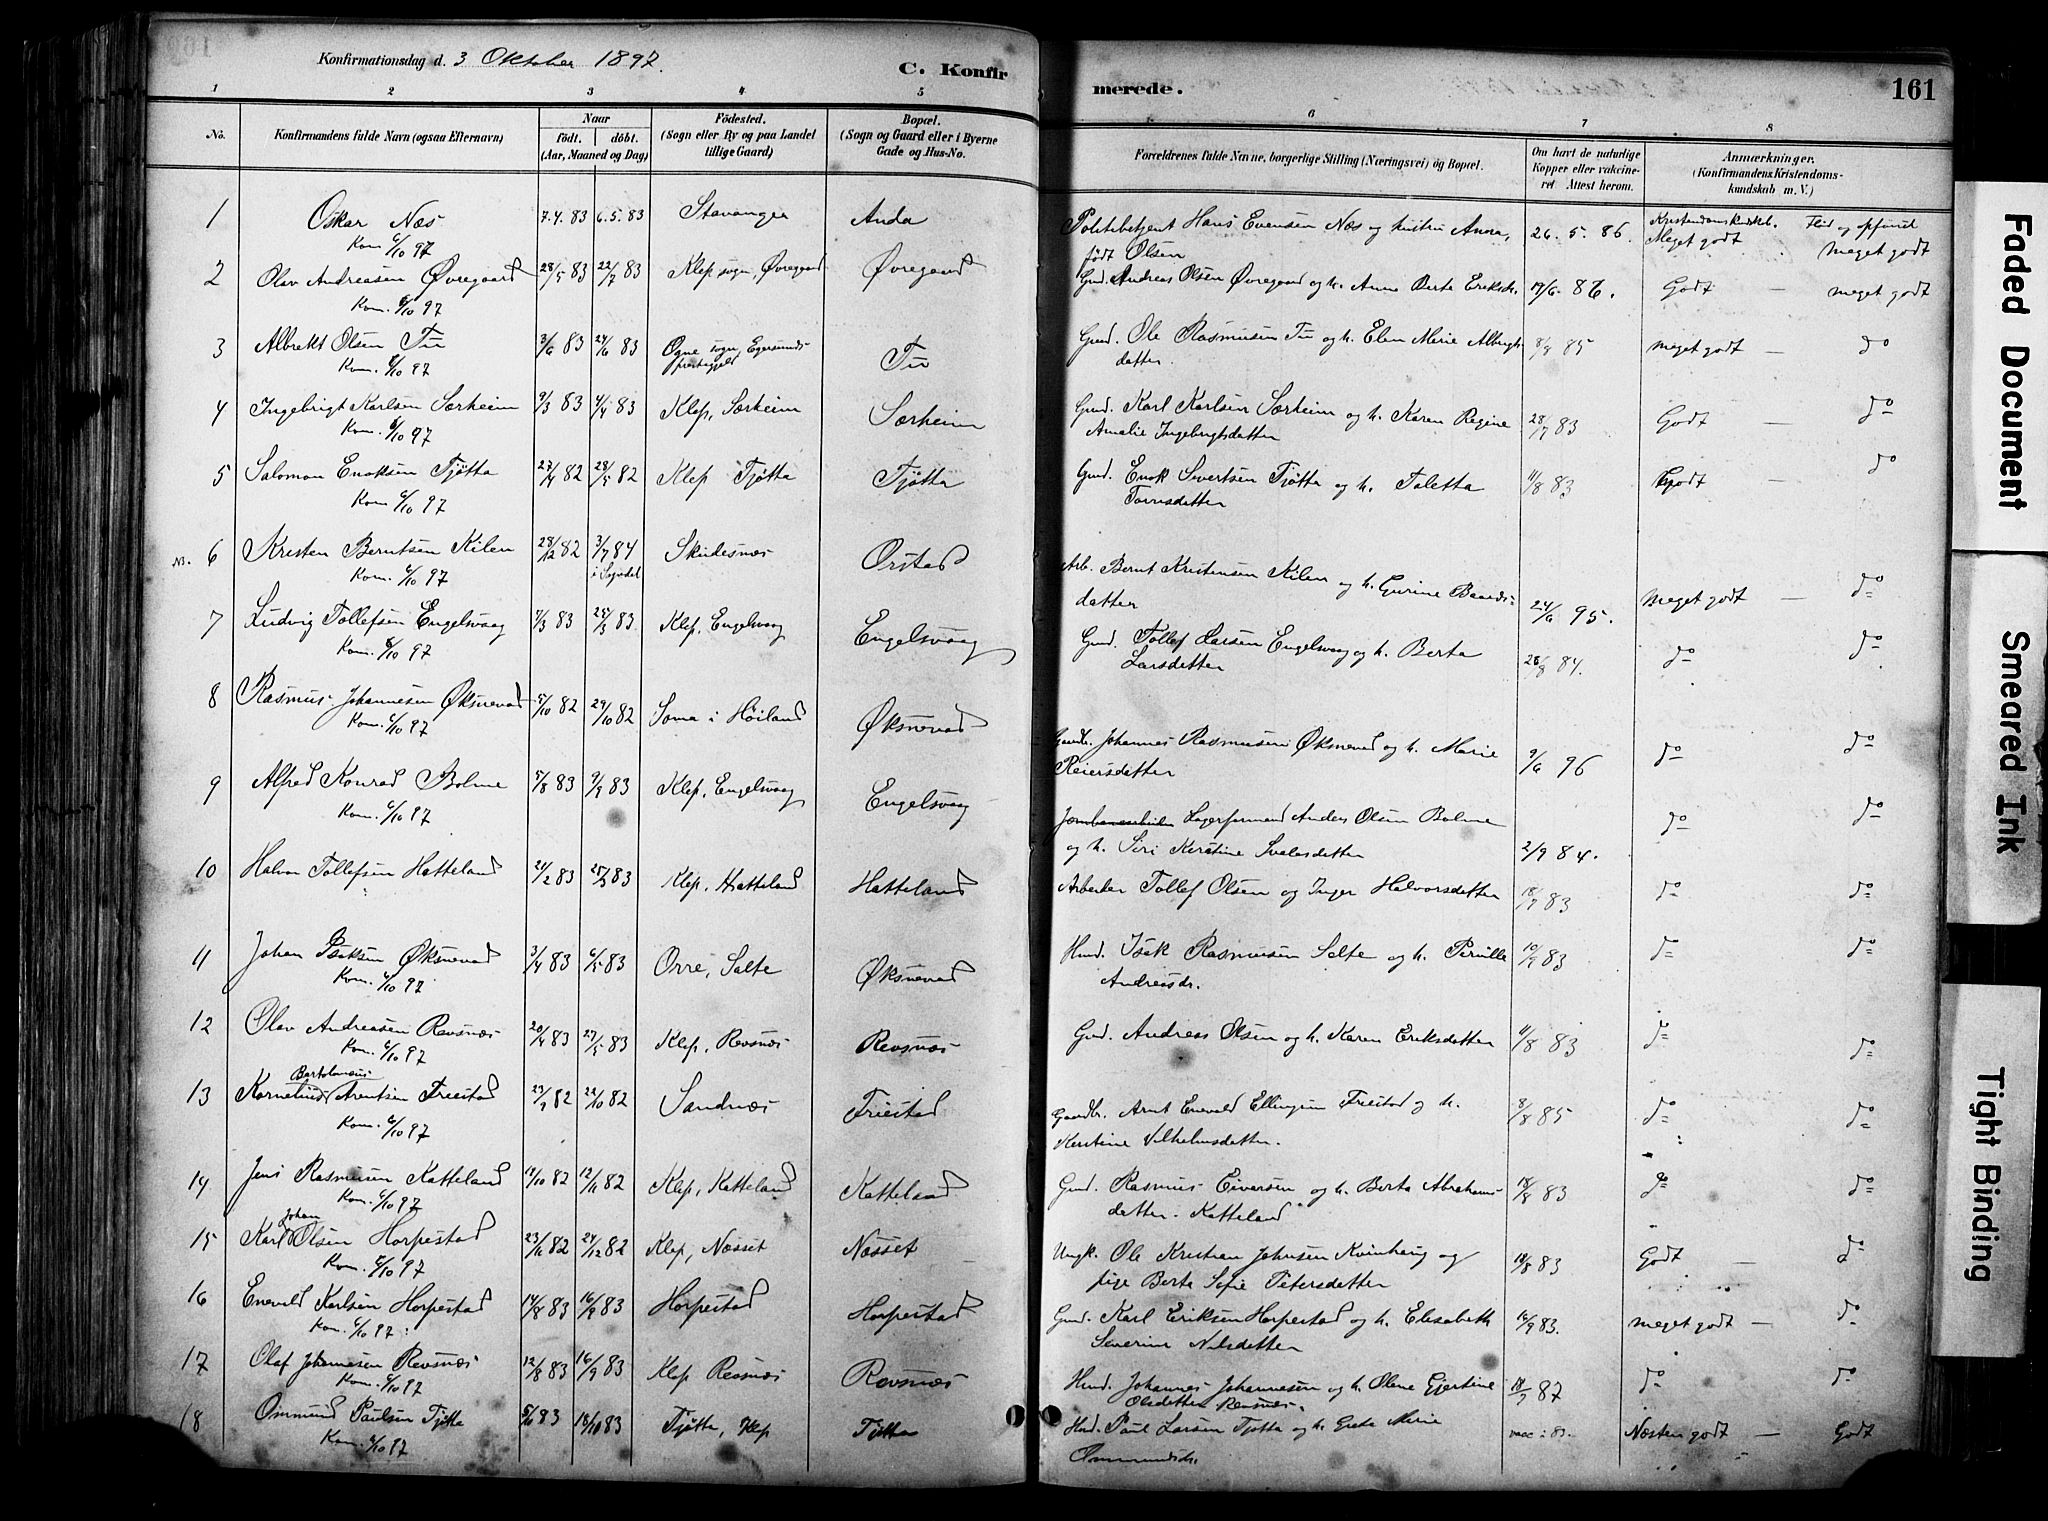 Konfirmationsdag d. 3 Oktober 1897.
C. Konfirmerede.
161
1 2 3 4 5 6 7 8
No.
Konfirmandens fulde Navn (ogsaa Efternavn)
Naar
født. døbt.
(Aar, Maaned og Dag)
Fødested.
(Sogn eller By og paa Landet
tillige Gaard)
Bopæl.
(Sogn og Gaard eller i Byerne
Gade og Hus-No.
Forældrenes fulde Navne, borgerlige Stilling (Næringsvei) og Bopæl.
Om havt de naturlige
Kopper eller vakcineret
Attest herom.
Anmærkninger.
(Konfirmandens Kristendomskundskab
m. V.)
1 Oskar Næs 7.4.83 6.5.83 Stavanger Anda Politibetjent Hans Evensen Næs og hustru Anna, 26.5.86. Kristendomskundskb. Flid og opførsel
Kom 6/10 97 født Olsen Meget godt meget godt
2 Olav Andreasen Øvregaard 28/5 83 22/7 83 Klep sogn, Øvregaard Øvregaard Gmd. Andreas Olsen Øvregaard og h. Anne Berte Eriksd. 17/6 86. Godt — meget godt
Kom. 6/10 97
3 Albrekt Olsen Tu 3/6 83 24/6 83 Ogne sogn, Egersunds Tu Gmd. Ole Rasmusen Tu og h. Elen Marie Albregts 8/8 85 meget godt — do
Kom. 6/10 97 præstegjeld datter.
4 Ingebrigt Karlsen Særheim 9/3 83 4/4 83 Klep, Særheim Særheim Gmd. Karl Karlsen Særheim og h. Karen Regine 28/7 83 Godt — do
Kom. 6/10 97 Amalie Ingebrigtsdatter
5 Salomon Enoksen Tjøtta 27/4 82 28/5 82 Klep Tjøtta Tjøtta Gmd. Enok Sivertsen Tjøtta og h. Taletta 11/8 83 Godt — do
Kom. 6/10 97 Torrisdatter
NB. 6 Kristen Berntsen Kilen 28/12 82 3/7 84 Skudesnæs Orstad Arb. Bernt Kristensen Kilen og h. Gurine Baards- 24/6 95. meget godt — do
Kom. 6/10 97 i Sogndal datter
7 Ludvig Tollefsen Engelsvaag 7/3 83 25/3 83 Klep, Engelsvaag Engelsvaag Gmd. Tollef Larsen Engelsvaag og h. Berta 28/8 84. do do
Kom. 6/10 97 Larsdatter
8 Rasmus Johannesen Øksnevad 5/10 82 29/10 82 Soma i Høiland Øksnevad Gaardb. Johannes Rasmusen Øksnevad og h. Marie 9/6 96 do do
Kom. 6/10 97 Reiersdatter
9 Alfred Konrad Bolme 5/8 83 9/9 83 Klep, Engelsvaag Engelsvaag Lagerformand Anders Olsen Bolme
Kom. 6/10 97 og h. Siri Kirstine Svalesdatter 2/9 84. do do
10 Halvor Tollefsen Hatteland 21/2 83 25/3 83 Klep, Hatteland Hatteland Arbeider Tollef Olsen og Inger Halvorsdatter 18/7 83 do do
11 Johan Isaksen Øksnevad 3/4 83 6/5 83 Orre, Salte Øksnevad Hmd. Isak Rasmusen Salte og h. Pernille 10/9 83 do do
Kom. 6/10 97 Andreasdr.
12 Olav Andreasen Revsnæs 20/4 83 27/5 83 Klep, Revsnæs Revsnæs Gmd. Andreas Olsen og h. Karen Eriksdatter 11/8 83 do do
Kom. 6/10 97
13 Kornelius Bartolomeus Arentsen Friestad 23/9 82 22/10 82 Sandnæs Friestad Gaardbr. Arnt Enevald Ellingsen Friestad og h. 8/8 85 do do
Kom. 6/10 97 Kirstine Vilhelmsdatter.
14 Jens Rasmusen Katteland 12/10 82 12/11 82 Klep, Katteland Katteland Gmd. Rasmus Eiversen og h. Berta Abrahams- 18/8 83 do do
Kom. 6/10 97 datter. Katteland
15 Karl Johan Olsen Horpestad 23/11 82 24/12 82 Klep, Næsset Næsset Ungk. Ole Kristian Johnsen Kvinhaug og 18/8 83 Godt — do
Kom. 6/10 97 pige Berta Sofie Petersdatter
16 Enevald Karlsen Horpestad 14/8 83 16/9 83 Horpestad Horpestad Gmd. Karl Eriksen Horpestad og h. Elisabeth 16/9 83. meget godt — do
Kom. 6/10 97 Severine Nilsdatter
17 Olaf Johannesen Revsnæs 12/8 83 16/9 83 Klep Revsnæs Revsnæs Hmd. Johannes Johannesen og h. Olene Gjertine 18/7 87 do do
Kom. 6/10 97 Olsdatter Revsnæs.
18 Ommund Paulsen Tjøtta 5/9 83 18/10 83 Tjøtta, Klep Tjøtta Hmd. Paul Larsen Tjøtta og h. Grete Marie vacc. i 83. Næsten godt — Godt
Kom. 6/10 97 Ommundsdr.
Faded Document
Smeared Ink
Tight Binding